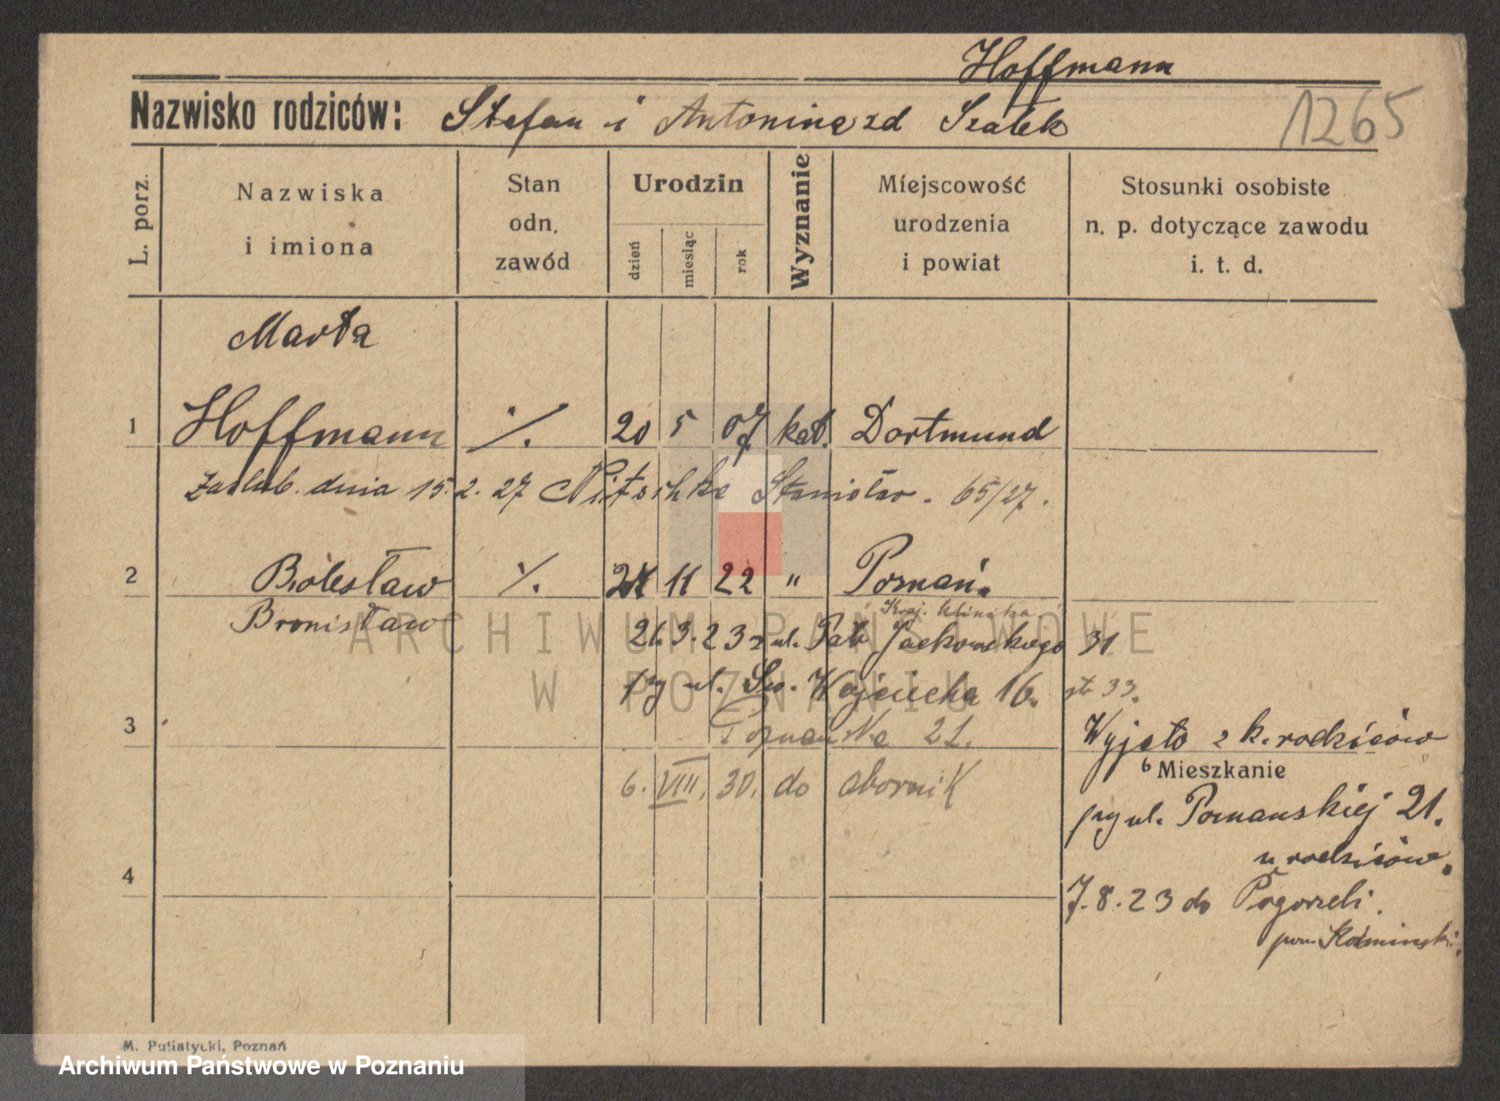 Hoffmann
Nazwisko rodziców: Stefan i Antonina zd Szałek
1265
L. porz.
Nazwiska i imiona
Stan odn. zawód
Urodzin
dzień
miesiąc
rok
Wyznanie
Miejscowość urodzenia i powiat
Stosunki osobiste n. p. dotyczące zawodu i. t. d.
Marta
1 Hoffmann ./. 20 5 07 kat. Dortmund
Zaślub. dnia 15.2.27 Nitschke Stanisław. 65/27.
2 Bolesław ./. 11 22 " Poznań.
Bronisław
Kraj. klinika
21.3.23 z ul. Jackowskiego 31
przy ul. Św. Wojciecha 16. 33.
3 Poznańska 21.
Wyjęto z k. rodziców
6. VIII. 30. do obornik
Mieszkanie
przy ul. Poznanskiej 21.
u rodziców.
4
7.8.23 do Pogorzeli.
pow. Kozminski.
ARCHIWUM PAŃSTWOWE
W POZNANIU
M. Putiatycki, Poznań
Archiwum Państwowe w Poznaniu